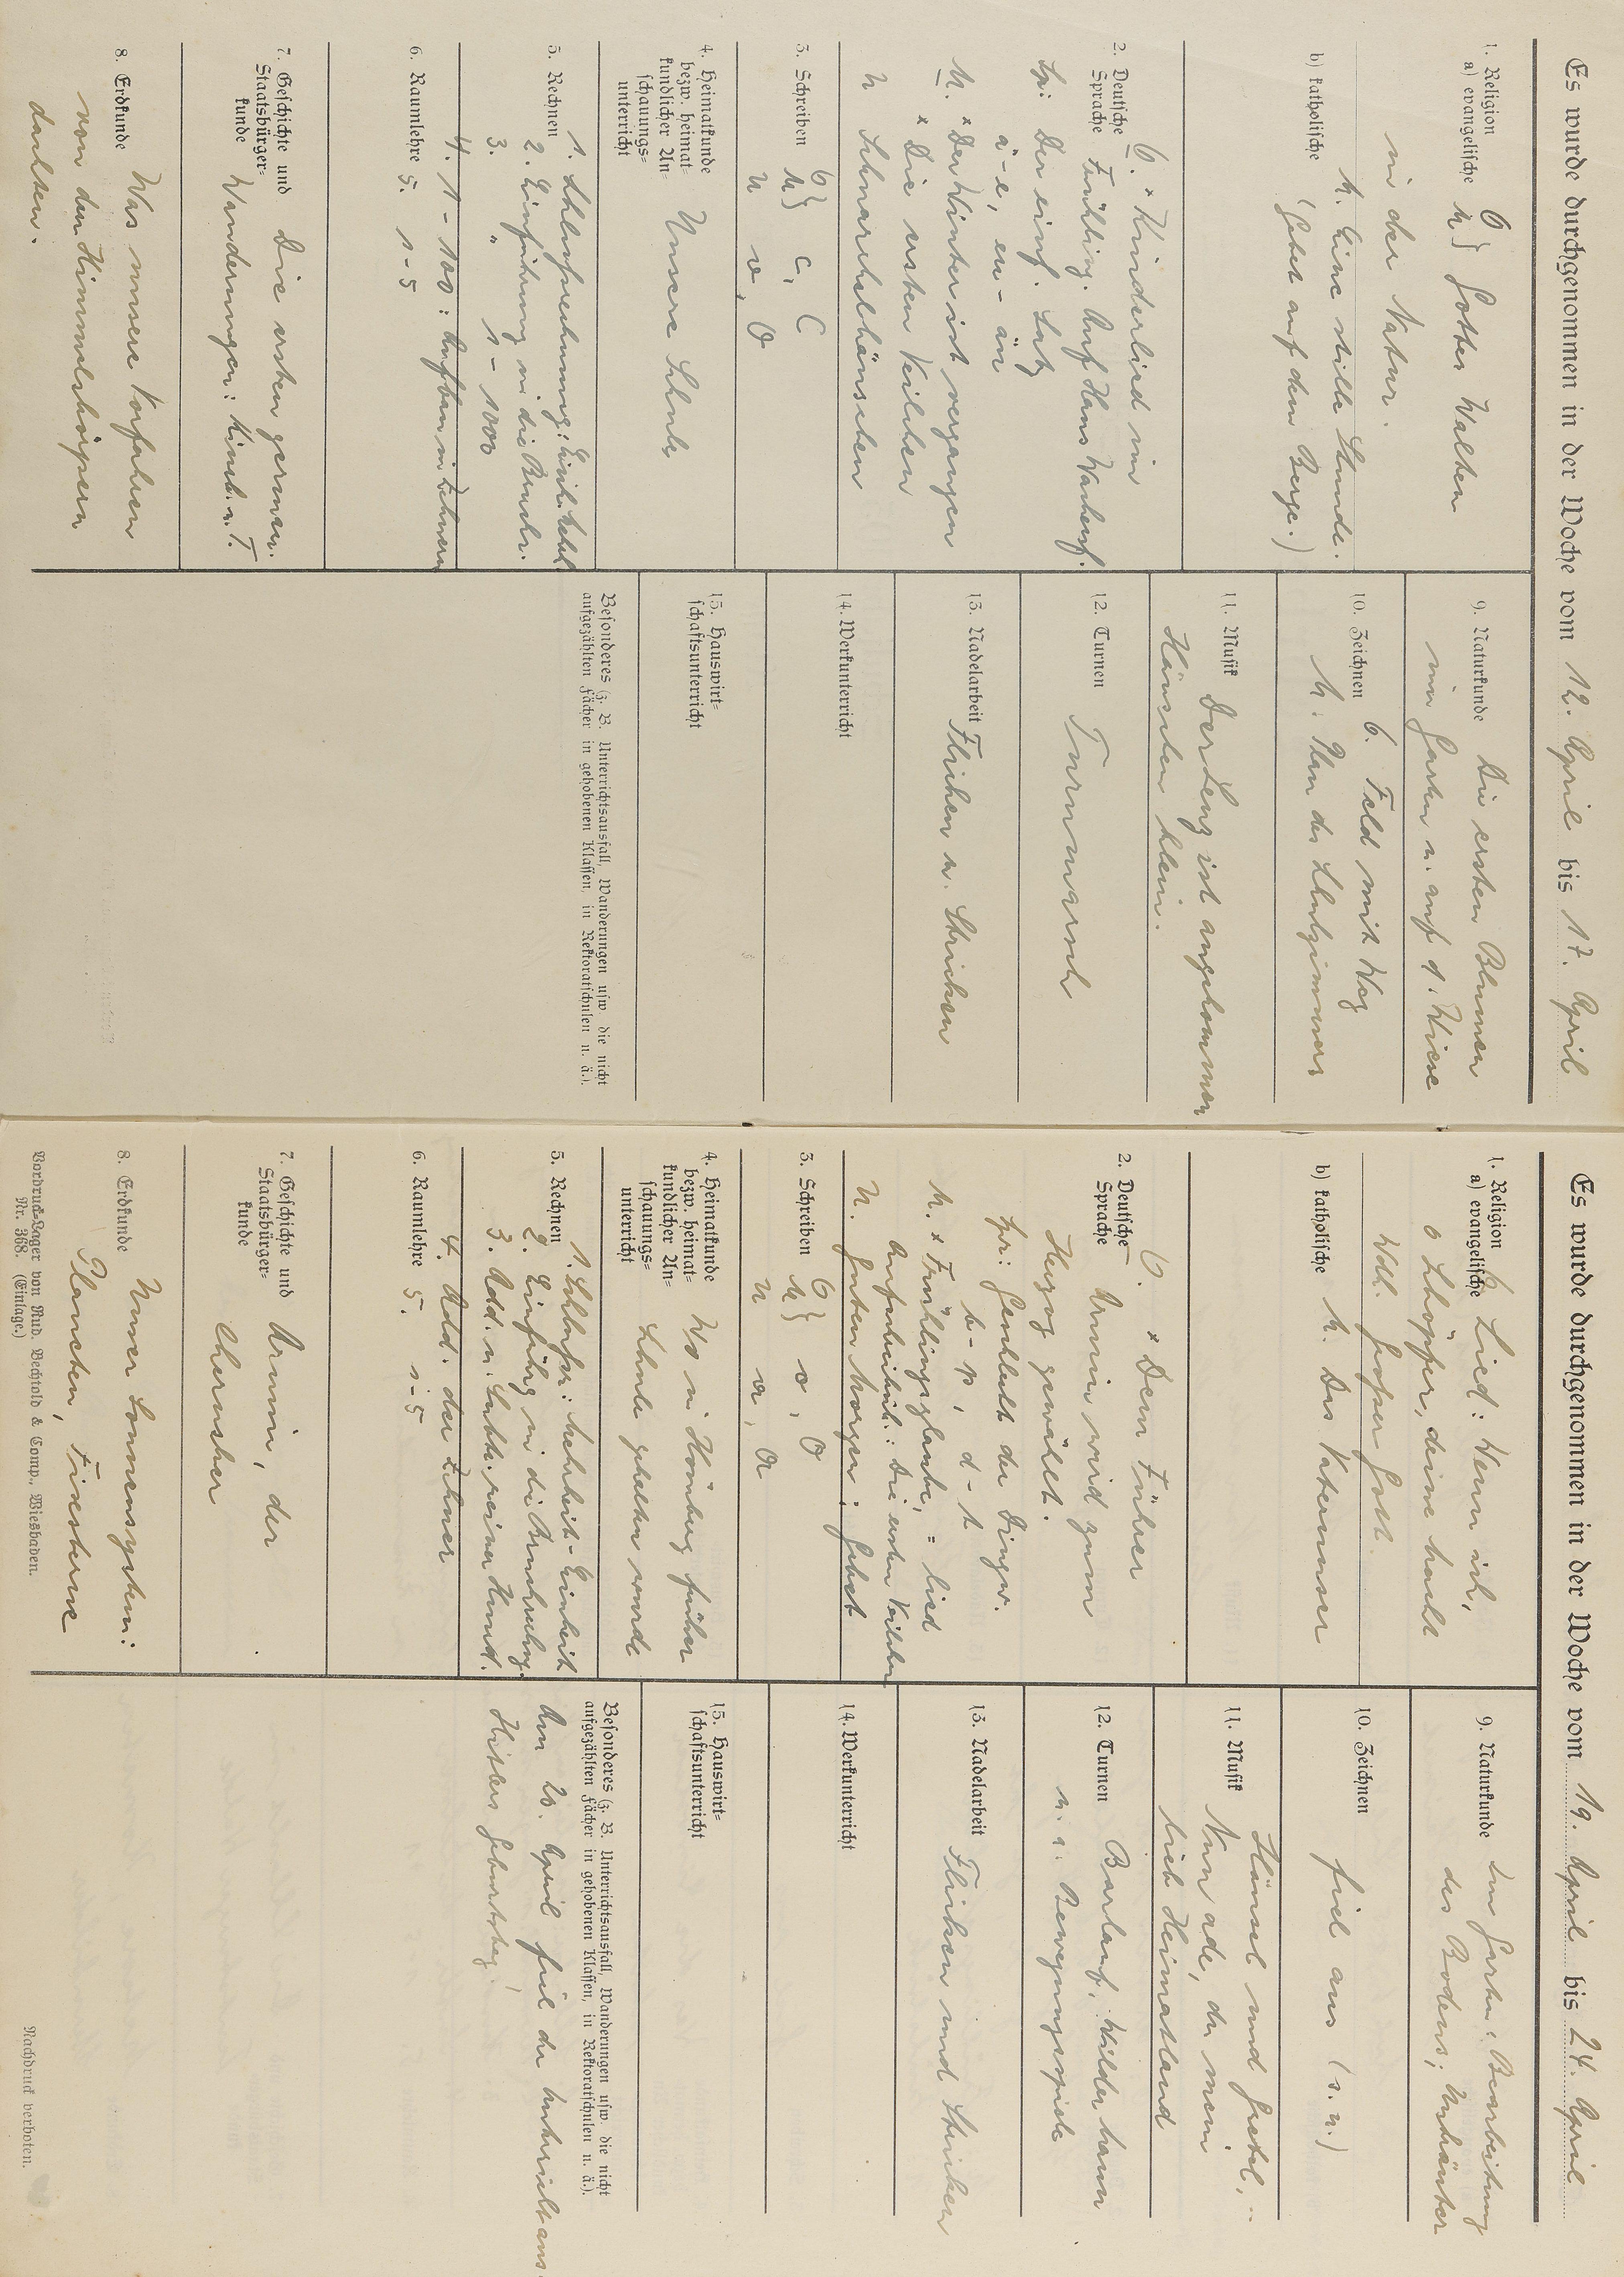 Es wurde durchgenommen in der Woche vom 12. April bis 17. April
1. Religion
a) evangelische
O
M } Gottes Walten
in der Natur.
b) katholische
M. Eine stille Stunde.
(Gebet auf dem Berge.)
2. Deutsche
Sprache
O. × Kinderlied im
Frühling. Auf Hans
Spr: Der einf. Satz
ä-e, eu-äu
M. × Der Winter ist vergangen
× Die ersten Veilchen
U Schnarchelhänschen
3. Schreiben
O
M } C, C
U o, O
4. Heimatkunde
bezw. heimat-
kundlicher An-
schauungs-
unterricht
Unsere Schule
5. Rechnen
1. Schlußrechnung:
2. Einführung in die Bruchr.
3. " 1-1000
4. 1-100: Aufbau in Zehnern
6. Raumlehre
5. 1-5
7. Geschichte und
Staatsbürger-
kunde
Die ersten german.
Wanderungen: Kimb. u. T.
8. Erdkunde
Was unsere Vorfahren
von den Himmelskörpern
dachten.
9. Naturkunde
Die ersten Blumen
im Garten u. auf d. Wiese
10. Zeichnen
O. Feld mit Weg
M. Plan des Schulzimmers
11. Musik
Der Lenz ist angekommen
Hänschen klein.
12. Turnen
Turnmarsch
13. Nadelarbeit
Flicken u. Stricken
14. Werkunterricht
15. Hauswirt-
schaftsunterricht
Besonderes (z. B. Unterrichtsausfall, Wanderungen usw. die nicht
aufgezählten Fächer in gehobenen Klassen, in Rektoratschulen u. ä.).
Es wurde durchgenommen in der Woche vom 19. April bis 24. April
1. Religion
a) evangelische
Lied: Wenn ich,
o Schöpfer, deine Macht
Wdh. Großer Gott.
b) katholische
M. Das Vaterunser
2. Deutsche
Sprache
O. × Dem Führer
Armin wird zum
Herzog gewählt.
Spr: Geschlecht der Dingw.
b-p, d-t
M. × Frühlingsglaube, = lied
Aufschreib.: Die ersten Veilchen
U. Guten Morgen; Gebet
3. Schreiben
O
M } o, O
U a, A
4. Heimatkunde
bezw. heimat-
kundlicher An-
schauungs-
unterricht
Wo in Homberg früher
Schule gehalten wurde
5. Rechnen
1. Schlußr: Mehrheit - Einheit
2. Einführg in die Bruchrechng.
3. Add. u. Subtr. reiner Hund.
4. Add. der Zehner
6. Raumlehre
5. 1-5
7. Geschichte und
Staatsbürger-
kunde
Armin, der
Cherusker
8. Erdkunde
Unser Sonnensystem:
Planeten, Fixsterne
9. Naturkunde
Im Garten: Bearbeitung
des Bodens; Unkräuter
10. Zeichnen
fiel aus (s. u.)
11. Musik
Hänsel und Gretel,
Nun ade, du mein
lieb Heimatland
12. Turnen
Barlauf, Wilder Mann
u. a. Bewegungsspiele
13. Nadelarbeit
Flicken und Stricken
14. Werkunterricht
15. Hauswirt-
schaftsunterricht
Besonderes (z. B. Unterrichtsausfall, Wanderungen usw. die nicht
aufgezählten Fächer in gehobenen Klassen, in Rektoratschulen u. ä.).
Am 20. April fiel der Unterricht aus.
Hitlers Geburtstag!
Vordruck-Lager von Rud. Bechtold & Comp., Wiesbaden.
Nr. 368. (Einlage.)
Nachdruck verboten.